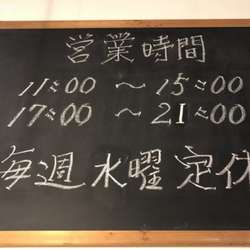 営業時間
11:00 ～ 15:00
17:00 ～ 21:00
毎週 水曜 定休